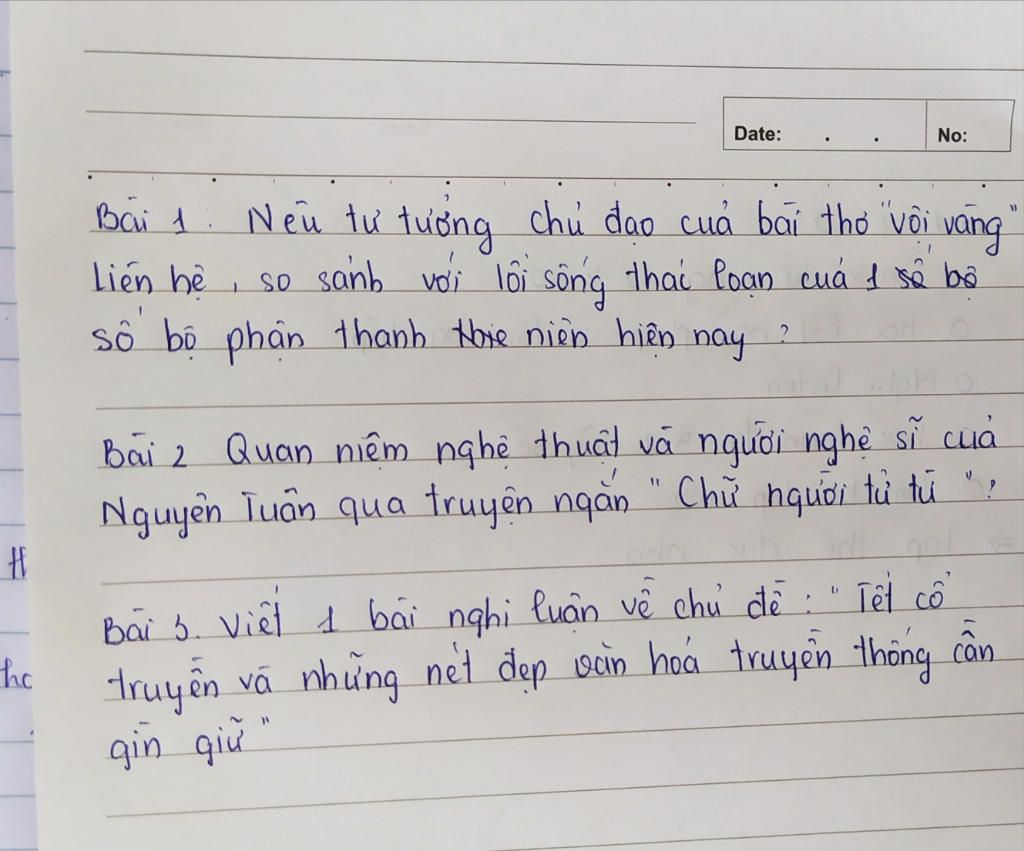 Date: . . No:
Bài 1. Nêu tư tưởng chủ đạo của bài thơ "vội vàng"
Liên hệ, so sánh với lối sống thác loạn của 1 số bộ
số bộ phận thanh niên hiện nay?
Bài 2 Quan niệm nghệ thuật và người nghệ sĩ của
Nguyễn Tuân qua truyện ngắn "Chữ người tử tù"?
Bài 3. Viết 1 bài nghị luận về chủ đề: "Tết cổ
truyền và những nét đẹp văn hoá truyền thống cần
gìn giữ"
H
hc